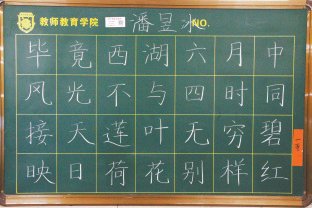 教师教育学院 潘昱水 NO.
毕竟西湖六月中
风光不与四时同
接天莲叶无穷碧
映日荷花别样红